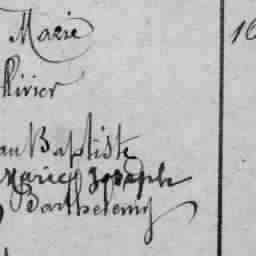 Marie 10
llivier
an Baptiste
Marie Joseph
Barthelemy